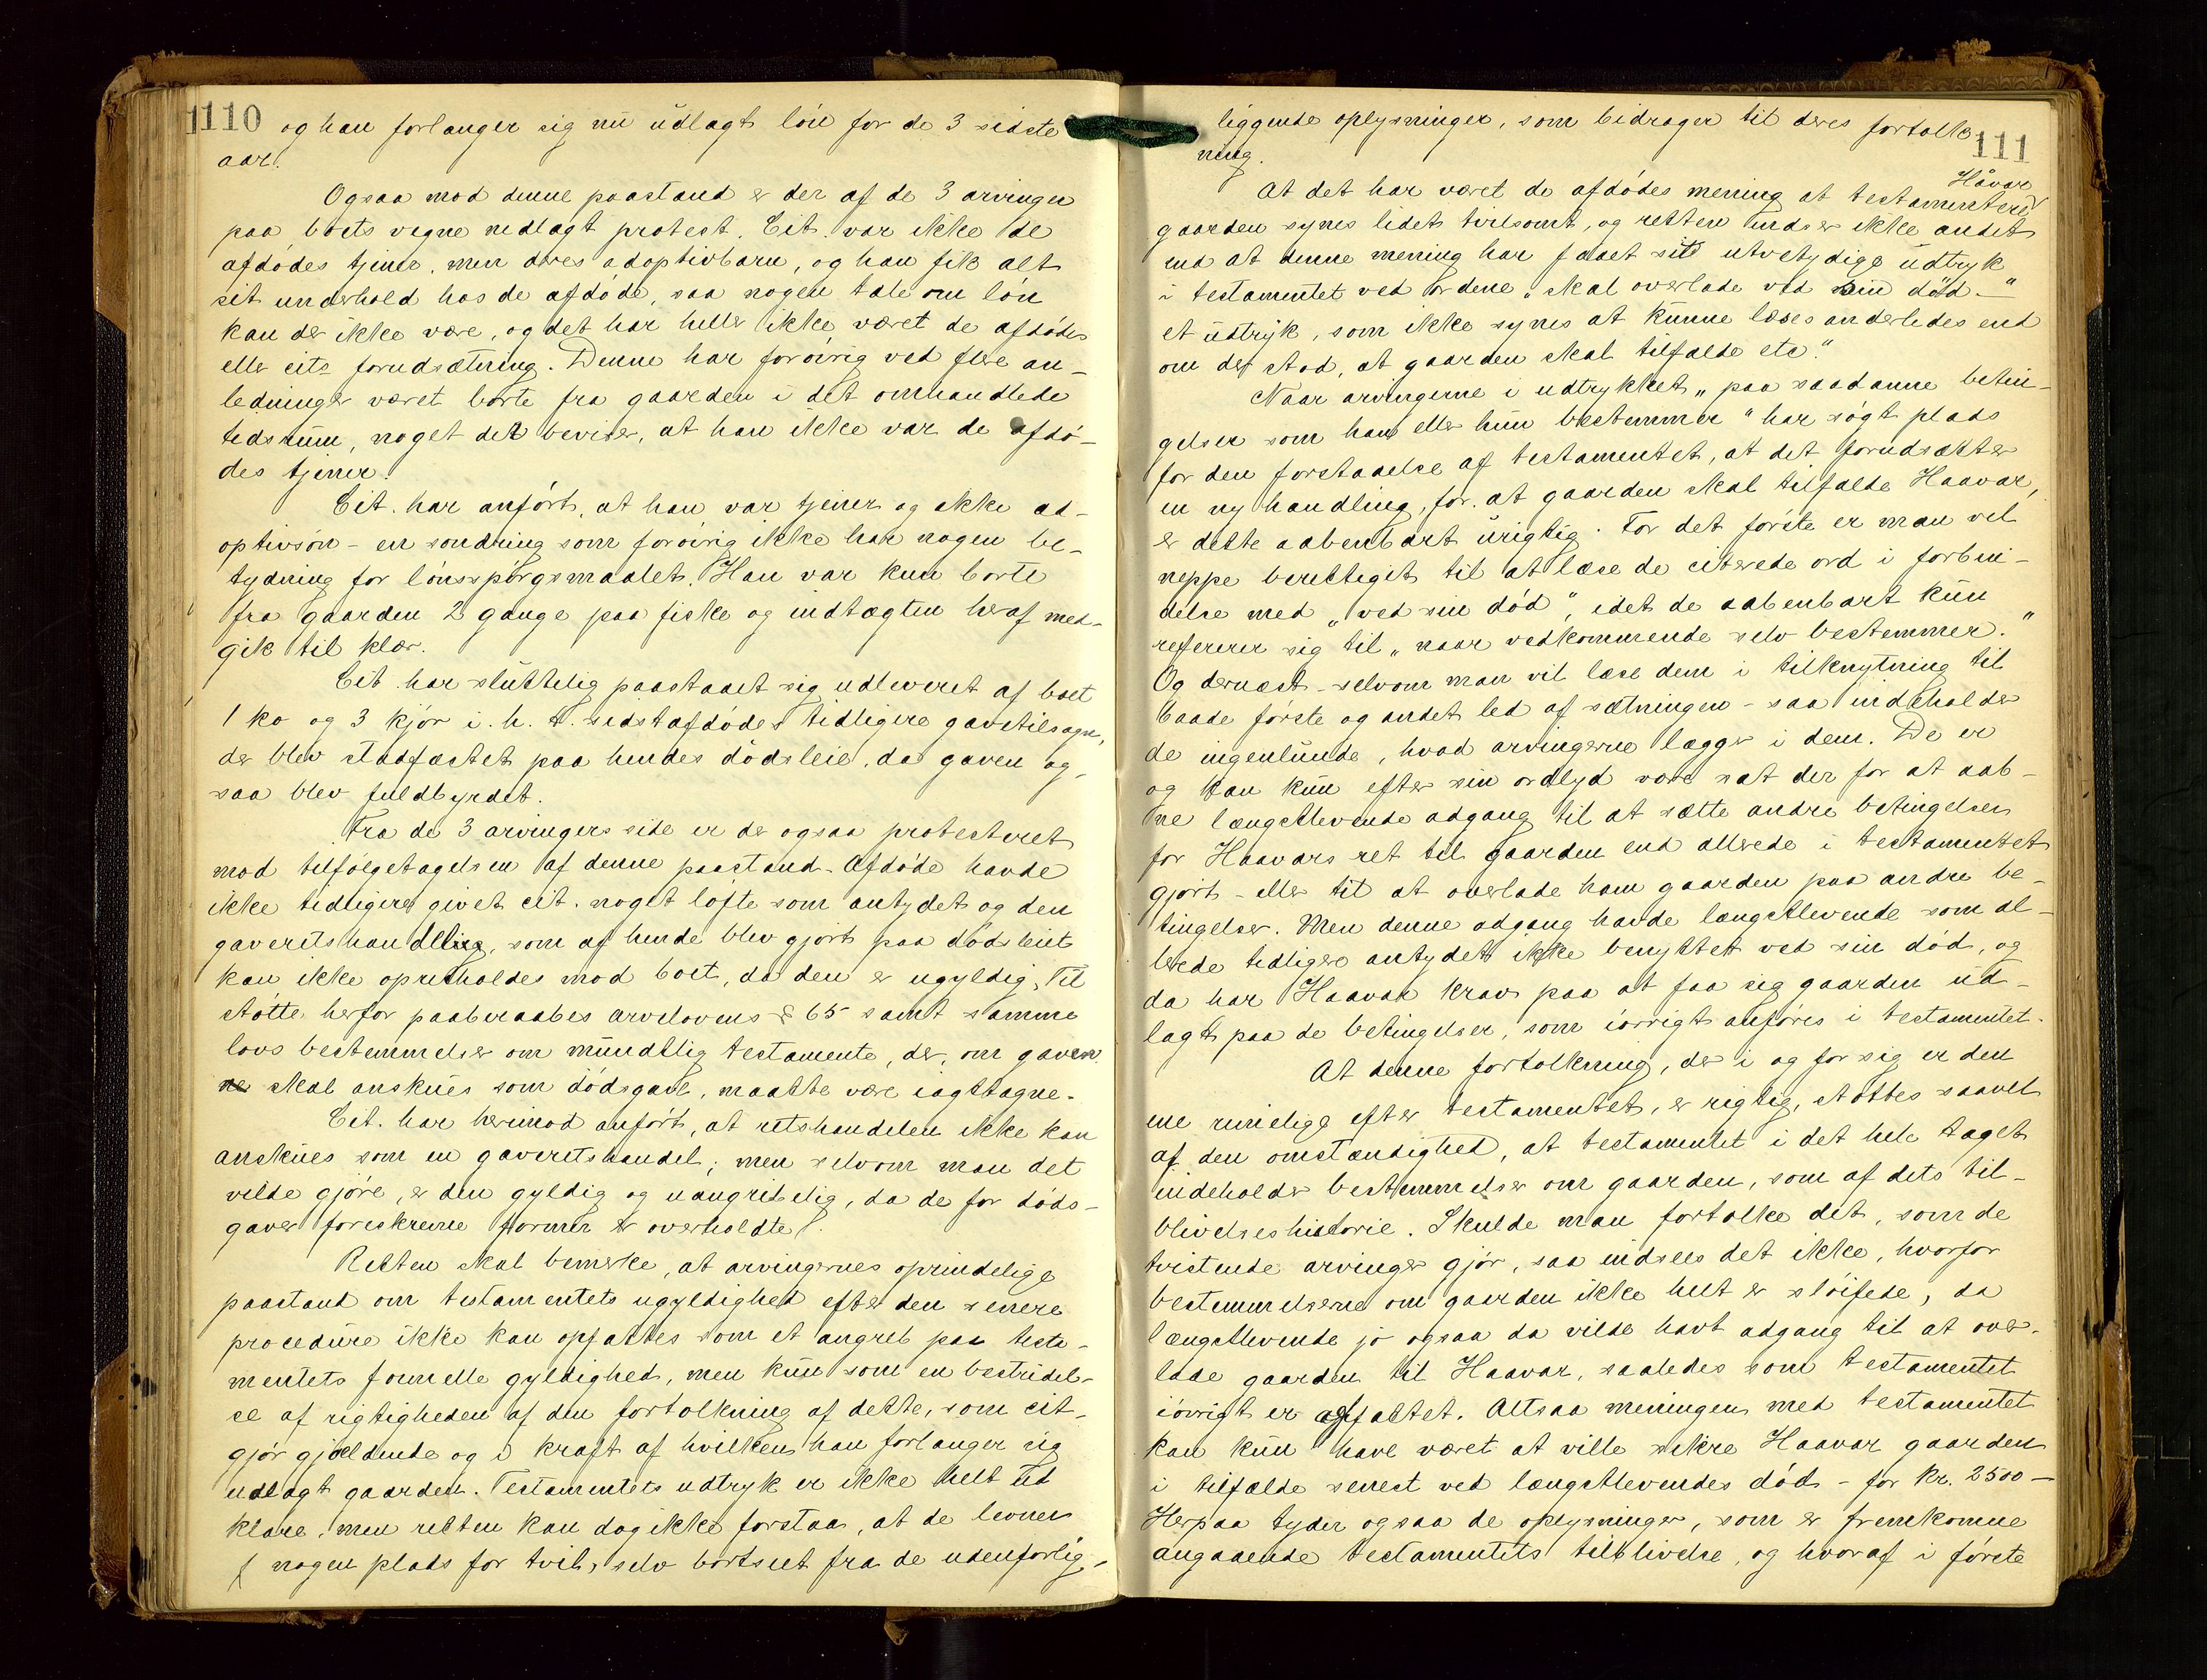 110
og han forlanger sig nu udlagt løn for de 3 sidste
aar.
Ogsaa mod denne paastand er der af de 3 arvinger
paa boets vegne nedlagt protest. Cit. var ikke de
afdødes tjener, men deres adoptivbarn, og han fik alt
sit underhold hos de afdøde, saa nogen tale om løn
kan der ikke være, og det har heller ikke været de afdødes
eller cits forudsætning. Denne har forøvrig ved flere an-
ledninger været borte fra gaarden i det omhandlede
tidsrum, noget der beviser, at han ikke var de afdø-
des tjener.
Cit. har anført, at han var tjener og ikke ad-
optivsøn - en sondring som forøvrig ikke har nogen be-
tydning for lønsspørgsmaalet. Han var kun borte
fra gaarden 2 gange paa fiske og indtægten heraf med-
gik til klær.
Cit. har sluttelig paastaaet sig udleveret af boet
1 ko og 3 kjør i. h. t. sidstafdødes tidligere gavetilsagn,
der blev stadfæstet paa hendes dødsleie, da gaven og-
saa blev fuldbyrdet.
Fra de 3 arvingers side er der ogsaa protesteret
mod tilfølgetagelsen af denne paastand. Afdøde havde
ikke tidligere givet cit. noget løfte som antydet og den
gaveretshandling, som af hende blev gjort paa dødsleiet
kan ikke opretholdes mod boet, da den er ugyldig. Til
støtte herfor paaberaabes arvelovens § 65 samt samme
lovs bestemmelser om mundtlig testamente, der, om gaven
skal anskues som dødsgave, maatte være iagttagne.
Cit. har herimod anført, at retshandelen ikke kan
anskues som en gaveretshandel; men selvom man det
vilde gjøre, er den gyldig og uangribelig, da de for døds-
gaver foreskrevne former er overholdte.
Retten skal bemerke, at arvingernes oprindelige
paastand om testamentets ugyldighed efter den senere
procedure ikke kan opfattes som et angreb paa testa-
mentets formelle gyldighed, men kun som en bestridel-
se af rigtigheden af den fortolkning af dette, som cit.
gjør gjældende og i kraft af hvilken han forlanger sig
udlagt gaarden. Testamentets udtryk er ikke helt ud
klare, men retten kan dog ikke forstaa, at de levner
nogen plads for tvil, selv bortset fra de udenforlig-
111
liggende oplysninger, som bidrager til deres fortolk-
ning.
At det har været de afdødes mening at testamentere Håvar
gaarden synes lidet tvilsomt, og retten indser ikke andet
end at denne mening har faaet sit utvetydige udtryk
i testamentet ved ordene "skal overlade ved sin død -"
et udtryk, som ikke synes at kunne læses anderledes end
om der stod, at gaarden skal tilfalde etc."
Naar arvingerne i udtrykket "paa saadanne betin-
gelser som han eller hun bestemmer" har søgt plads
for den forstaaelse af testamentet, at det forudsætter
en ny handling, for. at gaarden skal tilfalde Haavar,
er dette aabenbart urigtig. For det første er man vel
neppe berettiget til at læse de citerede ord i forbin-
delse med "ved sin død", idet de aabenbart kun
refererer sig til "naar vedkommende selv bestemmer."
Og dernæst - selvom man vil læse dem i tilknytning til
baade første og andet led af sætningen - saa indeholder
de ingenlunde, hvad arvingerne lægger i dem. De er
og kan kun efter sin ordlyd være sat der for at aab-
ne længstlevende adgang til at sætte andre betingelser
for Haavars ret til gaarden end allerede i testamentet
gjort - eller til at overlade ham gaarden paa andre be-
tingelser. Men denne adgang havde længstlevende som al-
lerede tidligere antydet ikke benyttet ved sin død, og
da har Haavar krav paa at faa sig gaarden ud-
lagt paa de betingelser, som iøvrigt anføres i testamentet.
At denne fortolkning, der i og for sig er den
ene rimelige efter testamentet, er rigtig, støttes saavel
af den omstændighed, at testamentet i det hele taget
indeholder bestemmelser om gaarden, som af dets til-
blivelseshistorie. Skulde man fortolke det, som de
tvistende arvinger gjør, saa indsees det ikke, hvorfor
bestemmelserne om gaarden ikke helt er sløifede, da
længstlevende jo ogsaa da vilde havt adgang til at over-
lade gaarden til Haavar, saaledes som testamentet
iøvrigt er affattet. Altsaa meningen med testamentet
kan kun have været at ville sikre Haavar gaarden
i tilfælde senest ved længstlevendes død - for kr. 2500 -
Herpaa tyder ogsaa de oplysninger, som er fremkomne
angaaende testamentets tilblivelse, og hvoraf i første